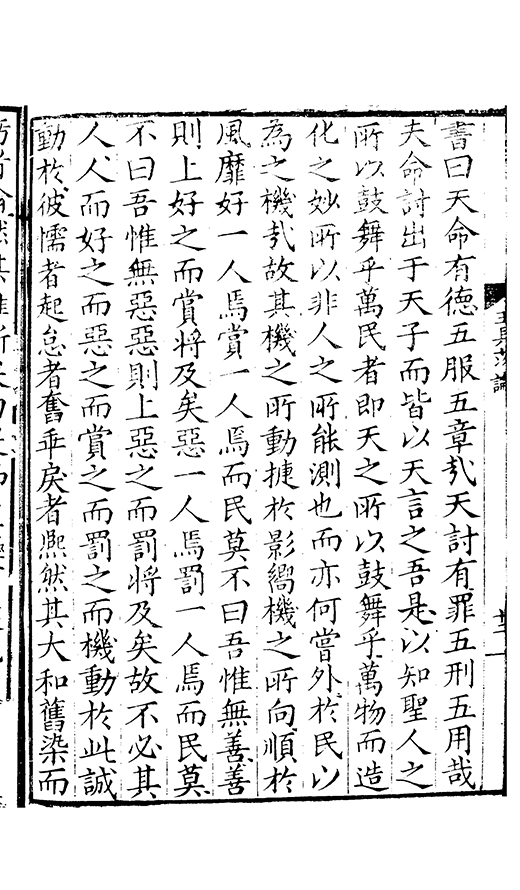 書曰天命有德五服五章㢤天討有罪五刑五用哉
夫命討出于天子而皆以天言之吾是以知聖人之
所以鼓舞乎萬民者即天之所以鼓舞乎萬物而造
化之妙所以非人之所能測也而亦何嘗外於民以
為之機㢤故其機之所動捷於影嚮機之所向順於
風靡好一人焉賞一人焉而民莫不曰吾惟無善善
則上好之而賞將及矣惡一人焉罰一人焉而民莫
不曰吾惟無惡惡則上惡之而罰將及矣故不必其
人人而好之而惡之而賞之而罰之而機動於此誠
動於彼懦者起怠者奮乖戾者熈然其大和舊染而